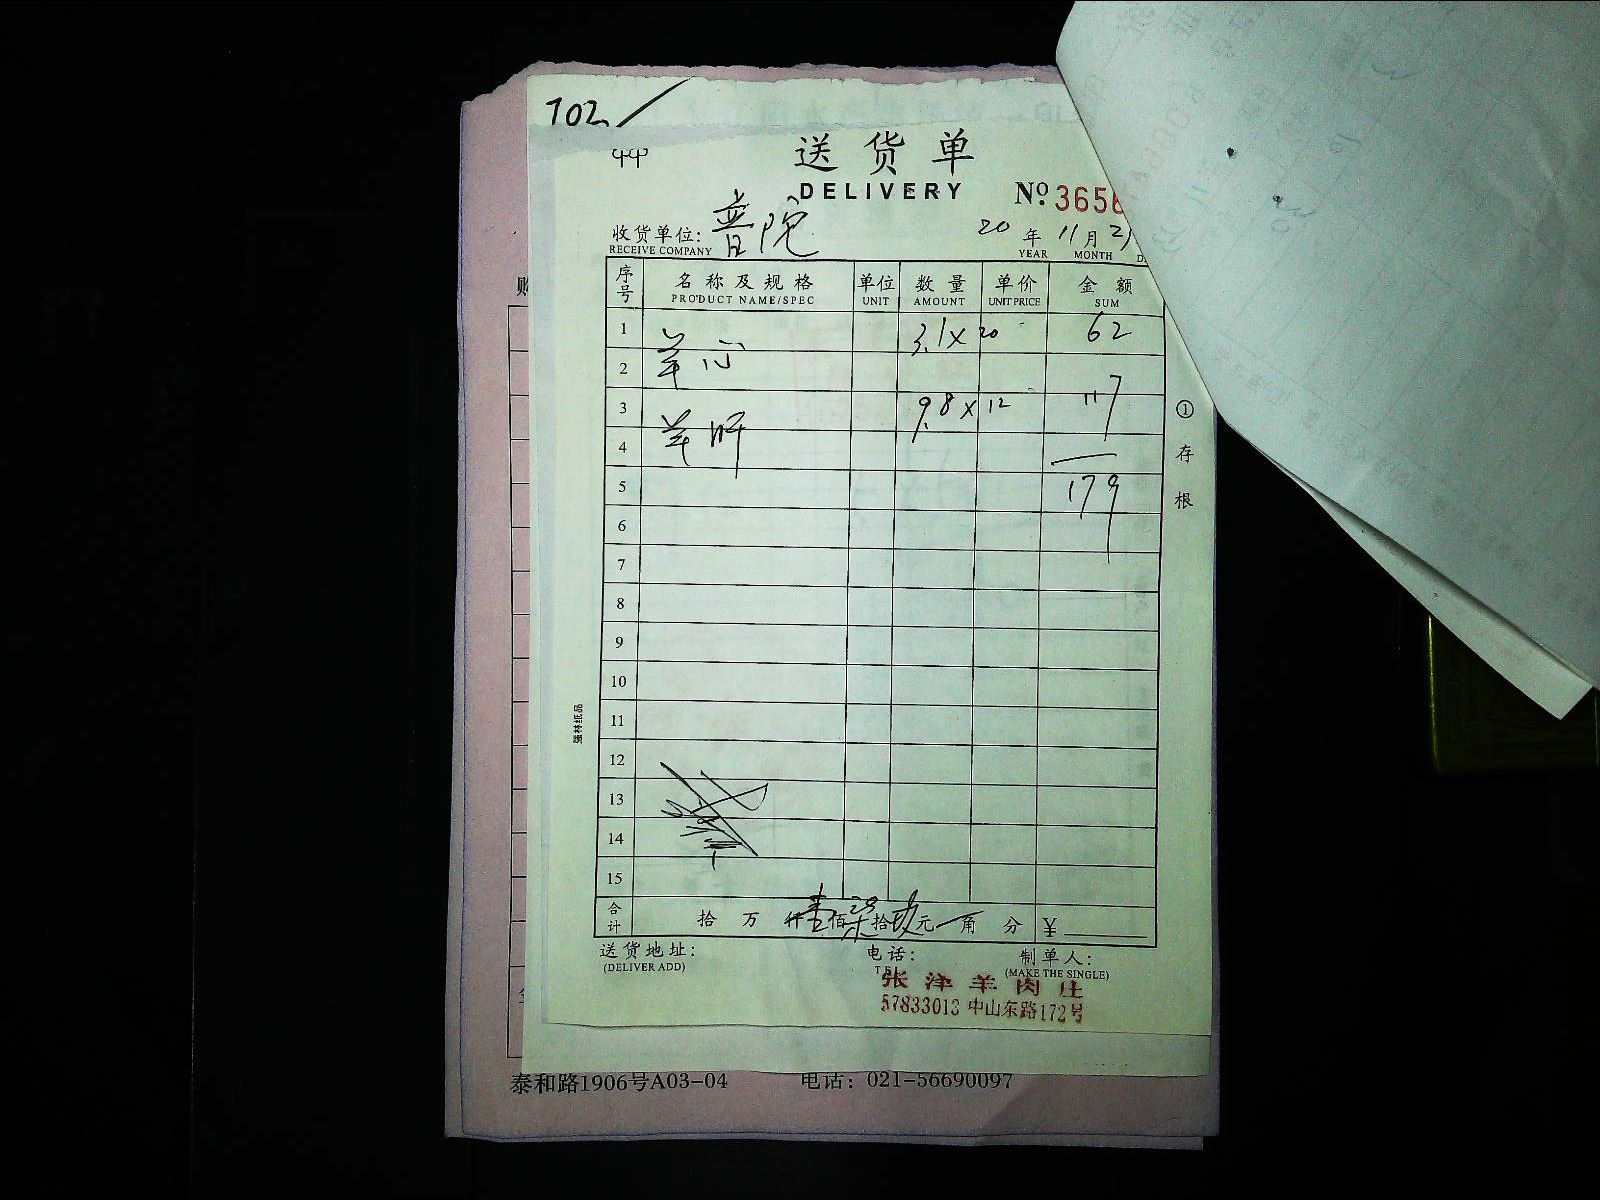 702
送货单
DELIVERY
Nº 3656
收货单位: 普院
RECEIVE COMPANY
20 年 11 月 21
YEAR MONTH D
序号 名称及规格 单位 数量 单价 金额
PRODUCT NAME/SPEC UNIT AMOUNT UNIT PRICE SUM
1 羊心 3.1×20 62
2
3 羊肝 9.8×12 117
4
5 179
6
7
8
9
10
11
12
13
14
15
合计 拾 万 仟 壹佰 柒拾 玖元 角 分 ¥
①存根
强林纸品
送货地址: 电话: 制单人:
(DELIVER ADD) (MAKE THE SINGLE)
张津羊肉庄
57833013 中山东路172号
泰和路1906号A03-04 电话：021-56690097